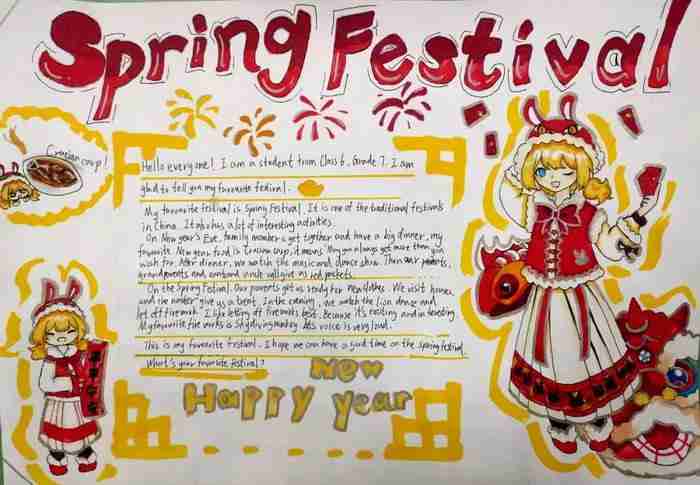 Spring Festival
Crucian carp!
Hello everyone! I am a student from Class 6, Grade 7. I am
glad to tell you my favourite festival.
My favourite festival is Spring Festival. It is one of the traditional festivals
in China. It also has a lot of interesting activities.
On New Year's Eve, family members get together and have a big dinner, my
favourite New Year food is Crucian carp, it means may you always get more than you
wish for. After dinner, we watch the magic and dance show. Then our parents,
grandparents and and uncle will give us red pockets.
On the Spring Festival. Our parents get us ready for new clothes. We visit
and the give us a In the evening, we watch the lion dance and
let off firework. I like letting off fireworks best. Because it's exciting and interesting
My favourite fire works is Skydiving monkey. Its voice is very loud.
This is my favourite festival. I hope we can have a good time on the spring festival.
What's your favourite festival?
New
Happy year